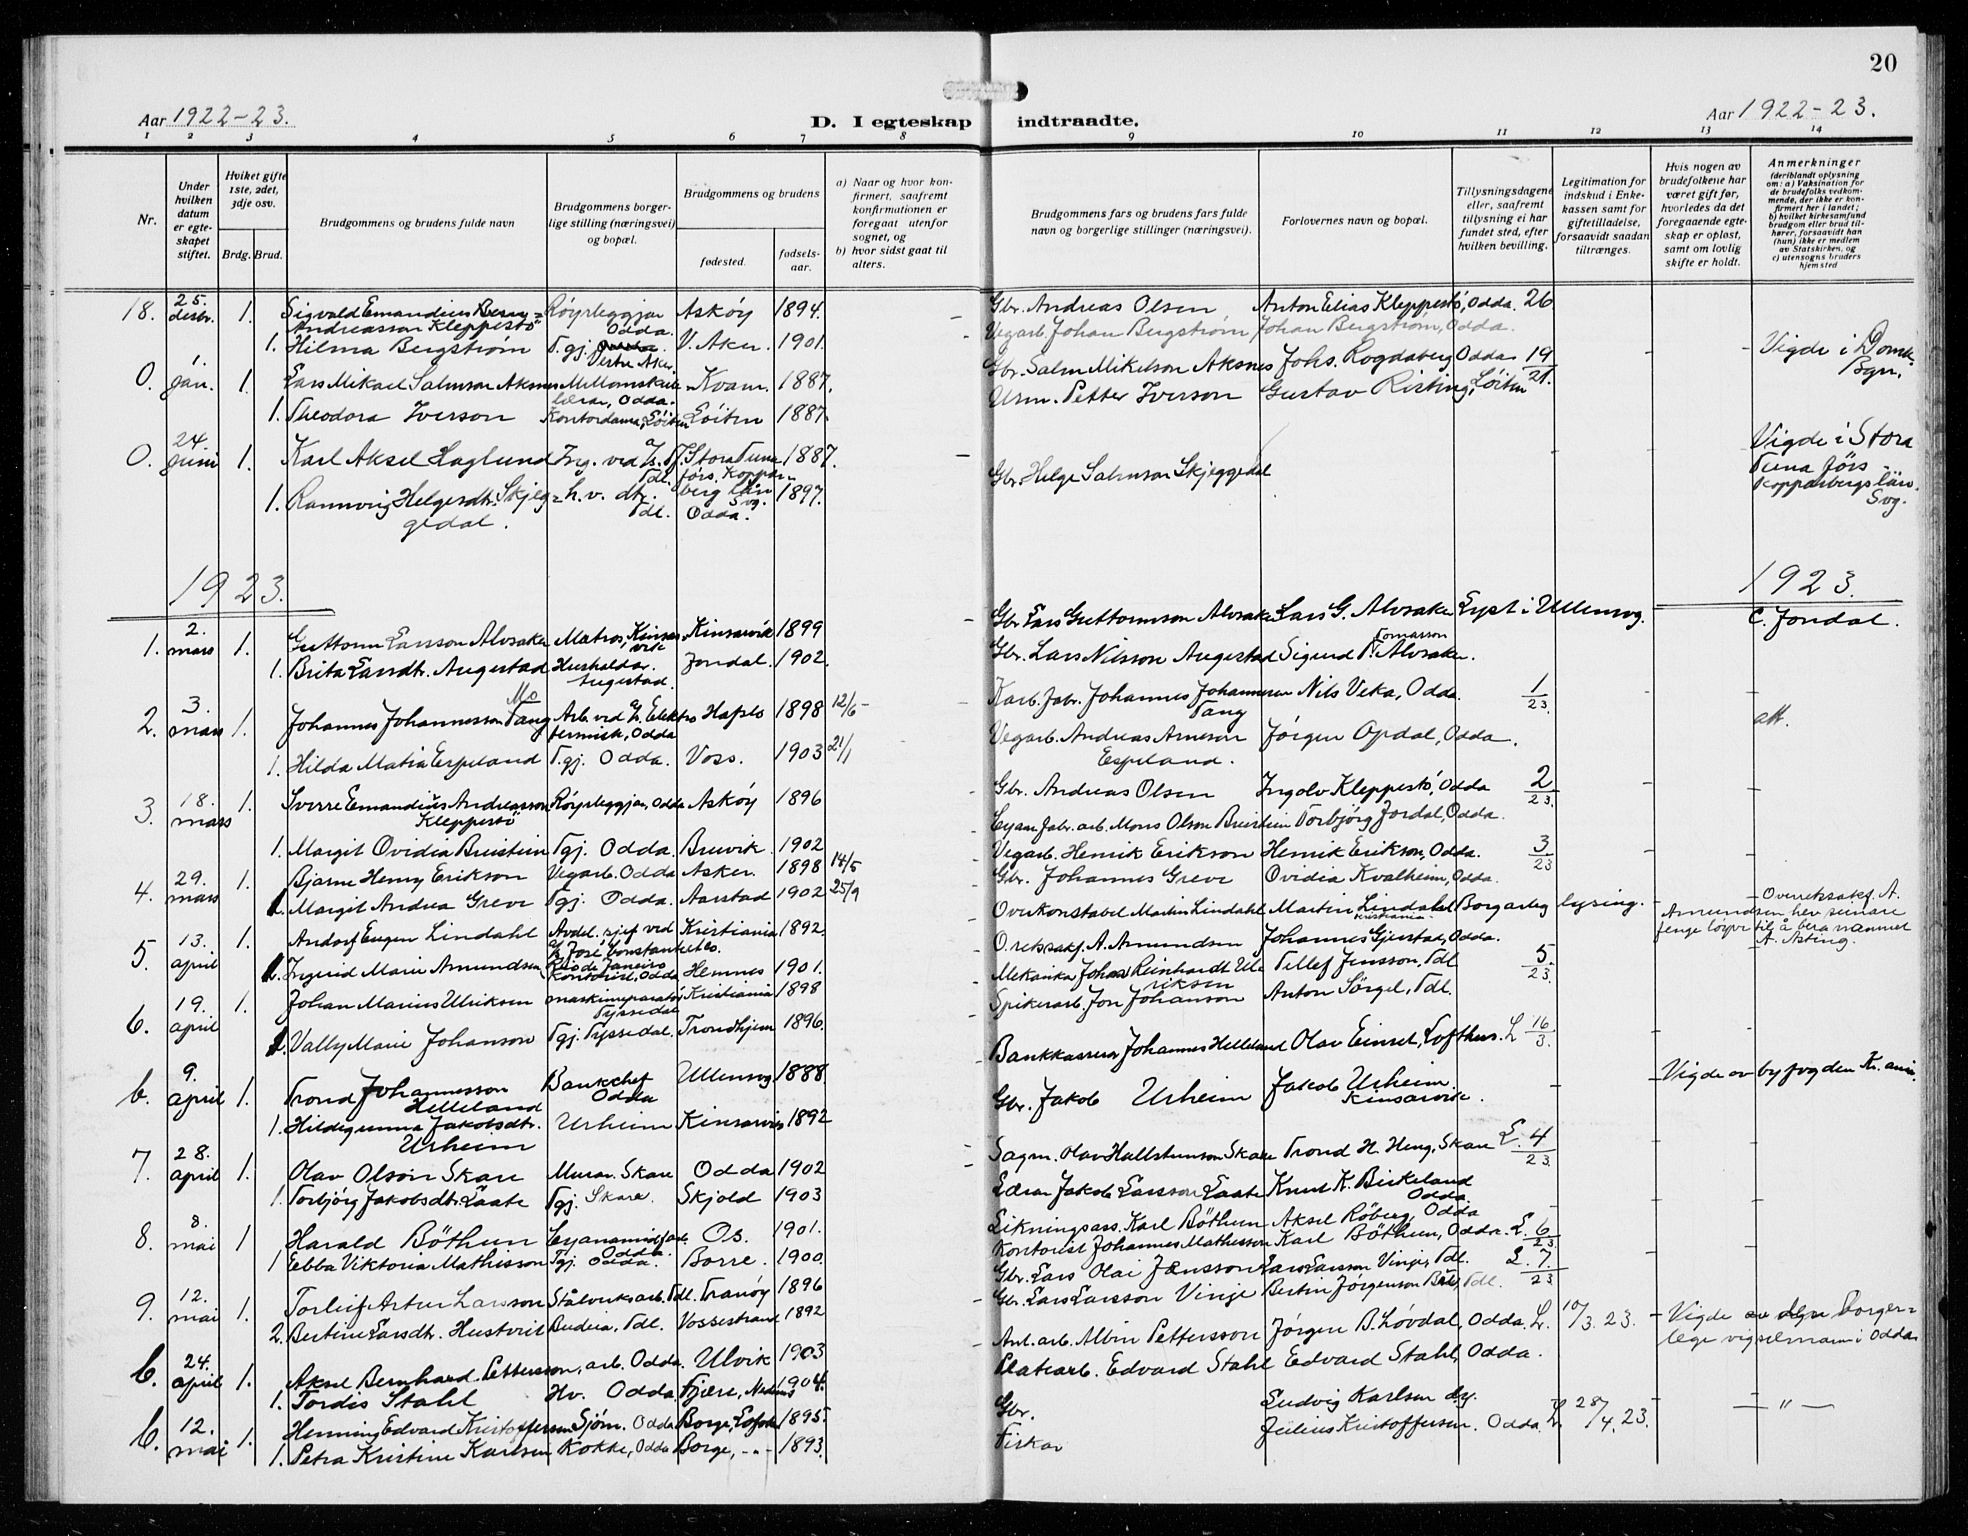 20
Aar 1922-23.
D. I egteskap indtraadte.
Aar 1922-23.
1 2 3 4 5 6 7 8 9 10 11 12 13 14
Nr.
Under hvilken datum er egteskapet stiftet.
Hviket gifte 1ste, 2det, 3dje osv.
Brdg. Brud.
Brudgommens og brudens fulde navn
Brudgommens borgerlige stilling (næringsvei) og bopæl.
Brudgommens og brudens
fødested.
fødselsaar.
a) Naar og hvor konfirmert, saafremt konfirmationen er foregaat utenfor sognet, og
b) hvor sidst gaat til alters.
Brudgommens fars og brudens fars fulde navn og borgerlige stillinger (næringsvei).
Forlovernes navn og bopæl.
Tillysningsdagene eller, saafremt tillysning ei har fundet sted, efter hvilken bevilling.
Legitimation for indskud i Enkekassen samt for giftetilladelse, forsaavidt saadan tiltrænges.
Hvis nogen av brudefolkene har været gift før, hvorledes da det foregaaende egteskap er opløst, samt om lovlig skifte er holdt.
Anmerkninger
(deriblandt oplysning om: a) Vaksination for de brudefolks vedkommende, der ikke er konfirmert her i landet; b) hvilket kirkesamfund brudgom eller brud tilhører, forsaavidt han (hun) ikke er medlem av Statskirken, og c) utensogns bruders hjemsted
18. 25. desbr. 1. Sigvald Emandius Andreasson Kleppestö Røyrleggjar Odda. Asköy 1894. Gbr. Andreas Olsen Anton Elias Kleppestö, Odda. 26
1. Hilma Bergstrøm T.gj. Vestre Aker. V. Aker. 1901. Vegarb. Johan Bergstrøm Johan Bergstrøm, Odda.
0. 1. jan. 1. Lars Mikael Salmson Aksnes Mellomskulelærar, Odda. Kvam. 1887. Gbr. Salm Mikelson Aksnes Johs. Rogdaberg Odda 19/21. Vigde i Domk. Bgn.
1. Theodora Iverson Kontordama, Löiten Löiten 1887. Urm. Petter Iverson Gustav Risting, Löiten
0. 24. juni 1. Karl Aksel Haglund Ing. ved Tdl. Stora Tuna förs. Kopparberg län Svg. 1887. Vigde i Stora Tuna förs Kopparbergs län. Svg.
1. Rannveig Helgesdtr. Skjeggedal. h.v. dtr. Tdl. Odda. 1897. Gbr. Helge Salmson Skjeggedal
1923. 1923.
1. 2. mars 1. Guttorm Larsson Alvsaker Matros, Kinsarvik Kinsarvik 1899 Gbr. Lars Guttormson Alvsaker Lars G. Alvsaker Lyst i Ullensvg. C. Jondal.
1. Brita Larsdtr. Augestad Hushaldar. Augestad. Jondal. 1902. Gbr. Lars Nilsson Augestad Sigurd Tomasson Alvsaker.
2. 3. mars 1. Johannes Johannesson Mo Tang Arb. ved Elektrokemisk, Odda Hafslo 1898 12/6 Karb. fabr. Johannes Johannesen Tang Nils Veka, Odda. 1/23. att.
1. Hilda Matia Espeland T.gj. Odda. Voss. 1903 21/1 Vegarb. Andreas Arneson Espeland. Jørgen Opdal, Odda.
3. 18. mars 1. Sverre Emandius Andreasson Kleppestö Røyrleggjar, Odda Asköy 1896 Gbr. Andreas Olsen Ingolv Kleppestö, Odda 2/23.
1. Margit Ovidia Breistein Tgj. Odda. Bruvik. 1902 Cyan. fabr. arb. Mons Olson Breistein Torbjörg Jordal, Odda.
4. 29. mars 1. Bjarne Henry Erikson Vegarb. Odda Asker. 1898 14/5 Vegarb. Henrik Erikson Henrik Erikson, Odda. 3/23
1. Margit Andrea Greve Tgj. Odda. Aarstad 1902 25/9 Gbr. Johannes Greve Ovidia Kvalheim, Odda.
5. 13. april 1. Andorf Eugen Lindahl Avdel. sjef ved José Constante & Co. Rio de Janeiro Kristiania 1892. Overkonstabel Martin Lindahl Martin Lindahl Kristiania. Borgarleg lysing. Overretssakf. A. Amundsen hev seinare fenge løyve til å bera namnet A. Asting.
1. Ingrid Marie Amundsen Kontorist, Odda Hemnes 1901. O.retssakf. A. Amundsen Johannes Gjerstad, Odda.
6. 19. april 1. Johan Marius Ulriksen maskinreparatör Tyssedal Kristiania 1898 Mekanikar Johan Reinhardt Ulriksen Tellef Jensson, Tdl 5/23.
1. Vally Marie Johanson Tgj. Tyssedal. Trondhjem 1896. Spikerarb. Jon Johanson Anton Sörgel, Tdl.
b. 9. april 1. Trond Johannesson Helleland Bankchef Odda Ullensvg 1888. Bankkasserer Johannes Helleland Olav Einset, Lofthus. L 16/3. Vigde av byfogden Kr.ania.
1. Hildigunna Jakobsdtr. Urheim Urheim Kinsarvik 1892 Gbr. Jakob Urheim Jakob Urheim. Kinsarvik.
7. 28. april 1. Olav Olson Skare Murar. Skare Odda 1902 Sagm. Olav Hallsteinson Skare Trond H. Heng, Skare L. 4/23.
1. Torbjörg Jakobsdtr. Laate Tgj. Skare. Skjold 1903 Lærar Jakob Larsson Laate Knut K. Birkeland Odda
8. 8. mai 1 Harald Böthun Cyanamidfabr. Odda Os. 1901. Likningsass. Karl Böthun Aksel Röberg, Odda
1 Ebba Viktoria Mathisson Tgj. Odda. Borre. 1900. Kontorist Johannes Mathisson Karl Böthun, Odda. L. 6/23.
9. 12. mai 1. Torleif Artur Larsson Stålverksarb. Tdl. Tranöy 1896 Gbr. Lars Olai Jænsson Lars Larsson Vinje, Tdl. L. 7/23
2. Bertine Larsdtr. Hustveit Budeia, Tdl. Vossestrand 1892 Gbr. Lars Larsson Vinje Bertin Jörgenson, Tdl.
b. 24. april 1. Aksel Bernhard Pettersson, arb. Odda. Ulvik 1903 Anl. arb. Albin Pettersson Jörgen B. Løvdal, Odda. L. 10/3. 23. Vigde av den borgerlege vigselmann i Odda
1. Tordis Stahl Hv. Odda Fjære, Nedenes 1904. Platearb. Edvard Stahl Edvard Stahl, Odda.
b. 12. mai 1. Henning Edvard Kristoffersen Sjöm. Odda Borge, Lofoten 1895. Gbr. Ludvig Karlsen Julius Kristoffersen. Odda L. 28/4. 23. — " —
1. Petra Kristine Karlsen Kokke, Odda Borge, -"- 1893. Fiskar